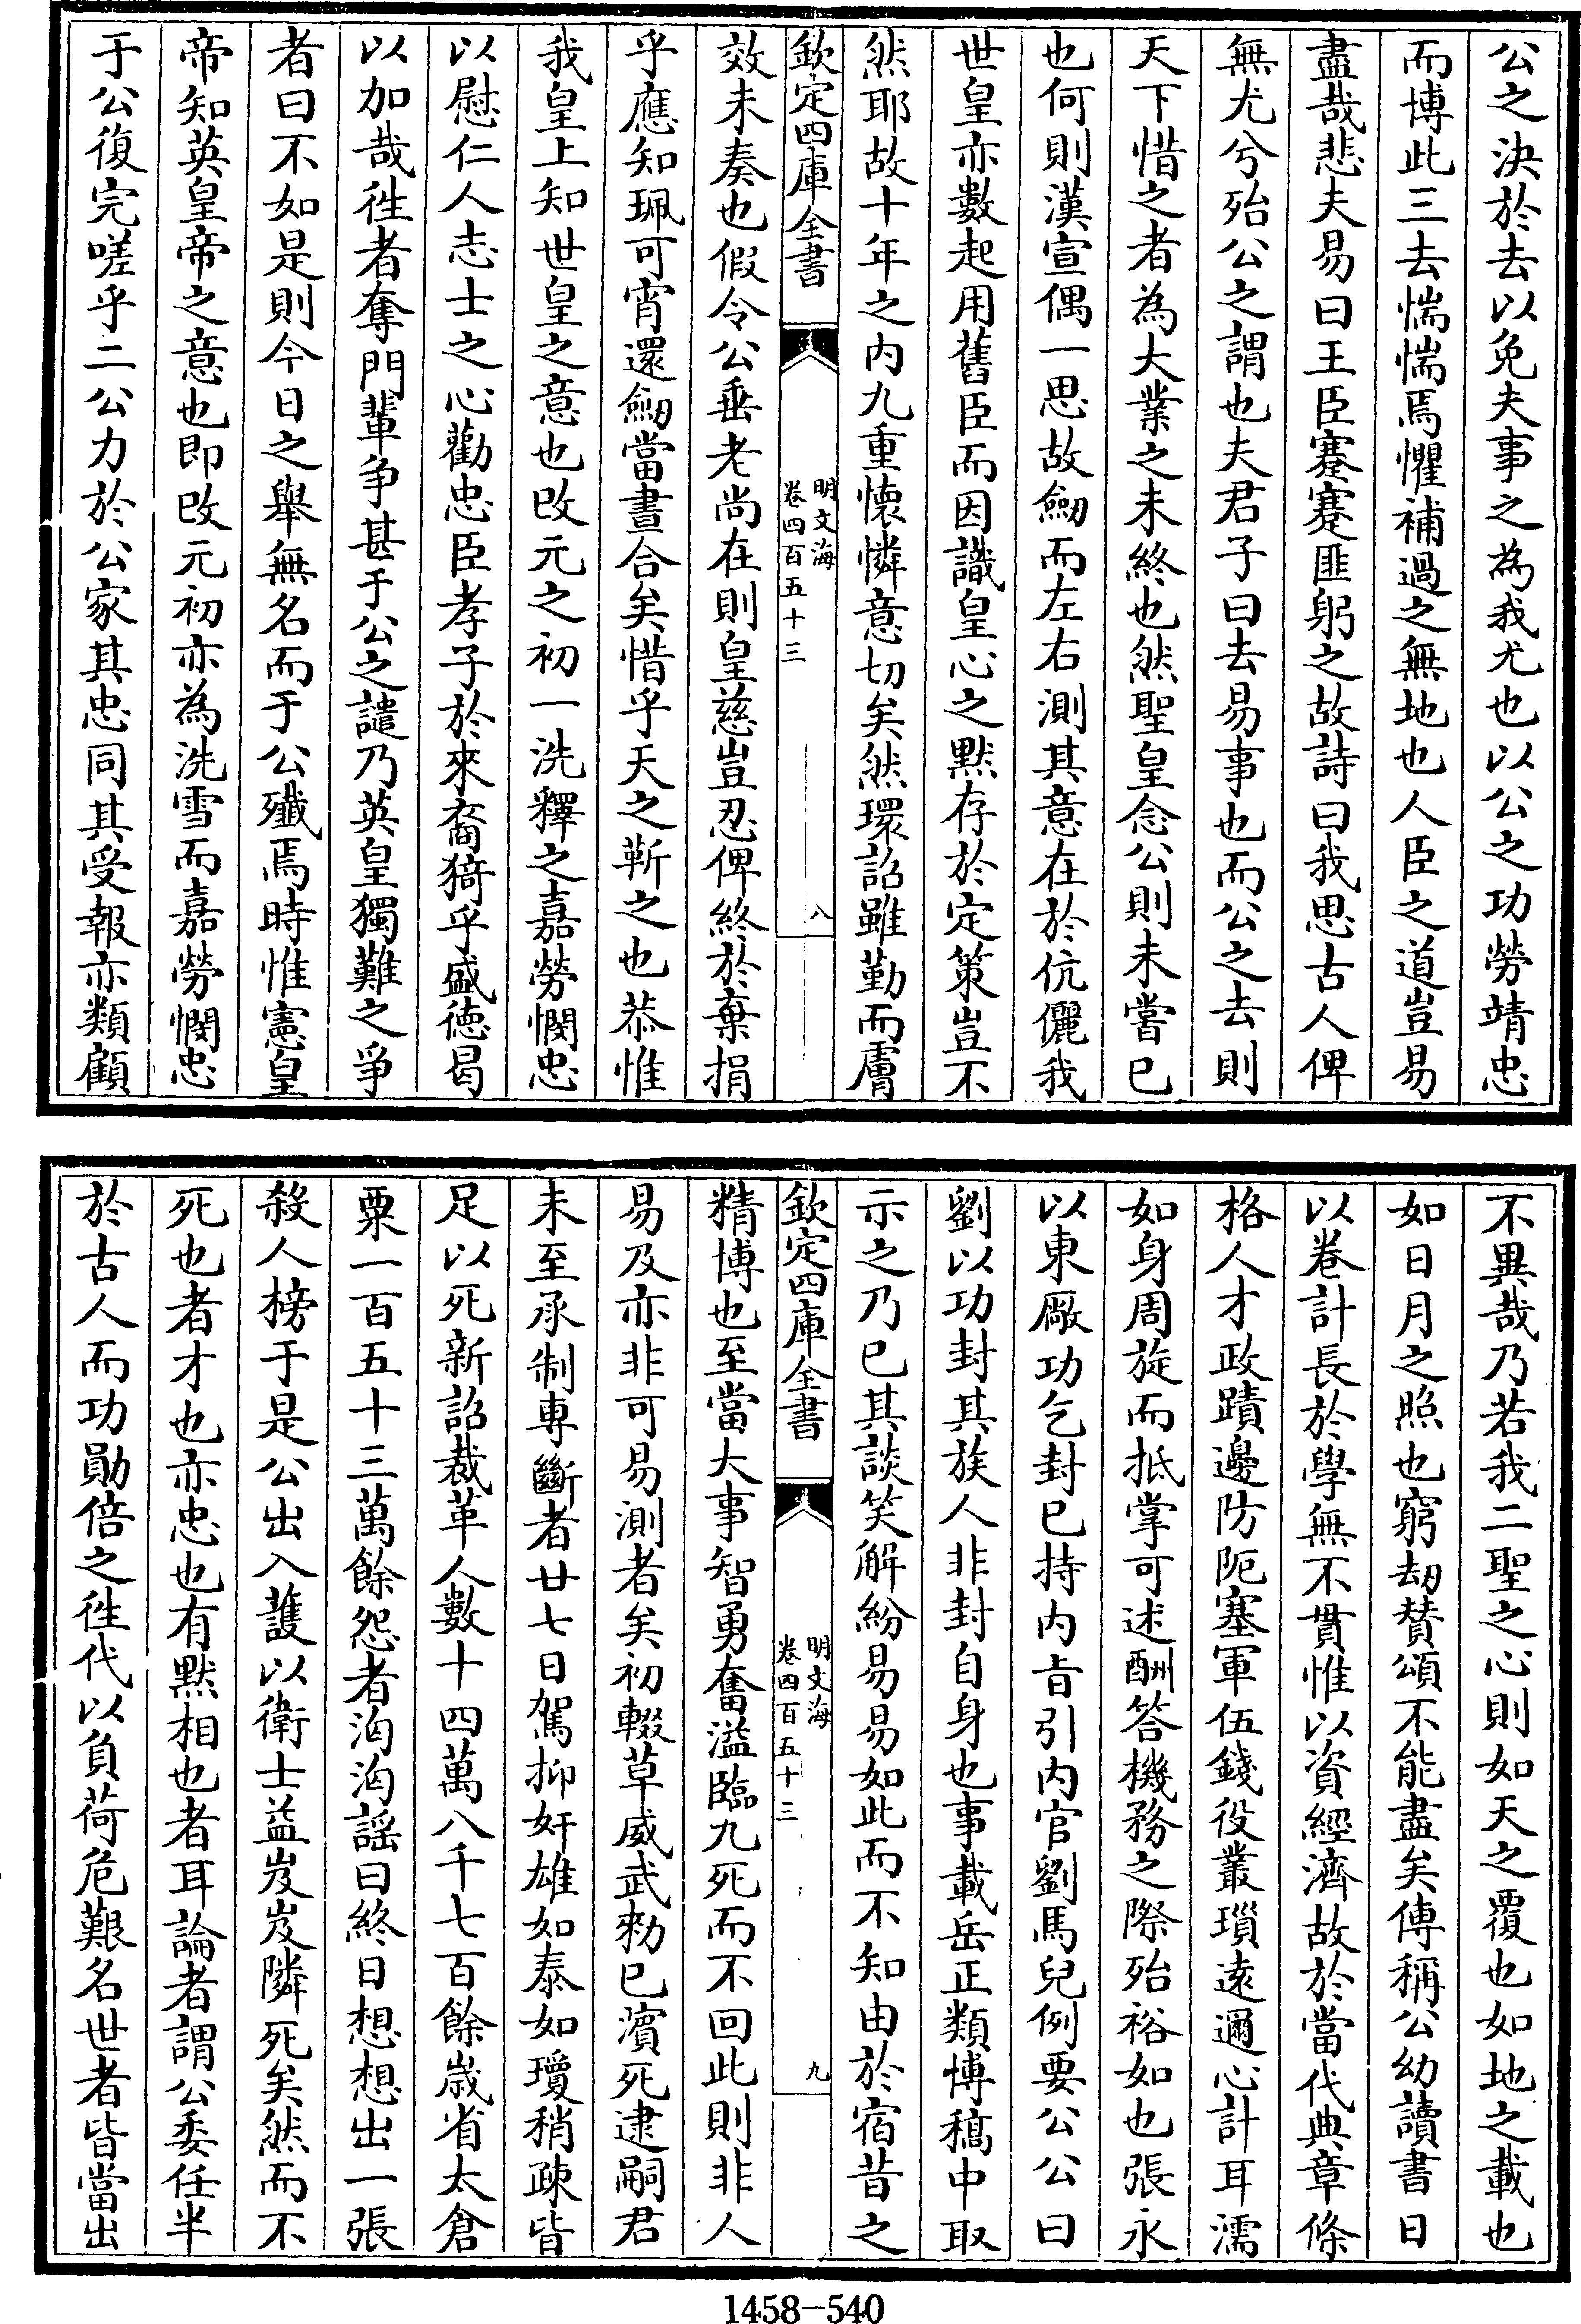 公之決於去以免夫事之為我尤也以公之功勞靖忠
而博此三去惴惴焉懼補過之無地也人臣之道豈易
盡哉悲夫易曰王臣蹇蹇匪躬之故詩曰我思古人俾
無尤兮殆公之謂也夫君子曰去易事也而公之去則
天下惜之者為大業之未終也然聖皇念公則未嘗已
也何則漢宣偶一思故劒而左右測其意在於伉儷我
世皇亦數起用舊臣而因識皇心之默存於定策豈不
然耶故十年之内九重懷憐意切矣然環詔雖勤而膚
欽定四庫全書
明文海
卷四百五十三
八
效未奏也假令公垂老尚在則皇慈豈忍俾終於棄捐
乎應知珮可宵還劒當晝合矣惜乎天之靳之也恭惟
我皇上知世皇之意也改元之初一洗釋之嘉勞憫忠
以慰仁人志士之心勸忠臣孝子於來裔猗乎盛德曷
以加哉徃者奪門輩争甚于公之讉乃英皇獨難之爭
者曰不如是則今日之舉無名而于公殱焉時惟憲皇
帝知英皇帝之意也即改元初亦為洗雪而嘉勞憫忠
于公復完嗟乎二公力於公家其忠同其受報亦類顧
不異哉乃若我二聖之心則如天之覆也如地之載也
如日月之照也窮劫賛頌不能盡矣傅稱公幼讀書日
以卷計長於學無不貫惟以資經濟故於當代典章條
格人才政蹟邊防阨塞軍伍錢役叢瑣遠邇心計耳濡
如身周旋而抵掌可述酬答機務之際殆裕如也張永
以東厰功乞封已持内㫖引内官劉馬兒例要公公曰
劉以功封其族人非封自身也事載岳正類博稿中取
示之乃已其談笑解紛易易如此而不知由於宿昔之
欽定四庫全書
明文海
卷四百五十三
九
精博也至當大事智勇奮溢臨九死而不回此則非人
易及亦非可易測者矣初輟草威武勑已濵死逮嗣君
未至承制專斷者廿七日駕抑奸雄如泰如瓊稍疎皆
足以死新詔裁革人數十四萬八千七百餘歲省太倉
粟一百五十三萬餘怨者洶洶謡曰終日想想出一張
殺人榜于是公出入䕶以衛士益岌岌隣死矣然而不
死也者才也亦忠也有默相也者耳論者謂公委任半
於古人而功勛倍之徃代以負荷危艱名世者皆當出
1458—540